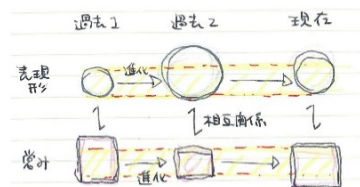 過去1 過去2 現在
表現形 進化
相互関係
進化